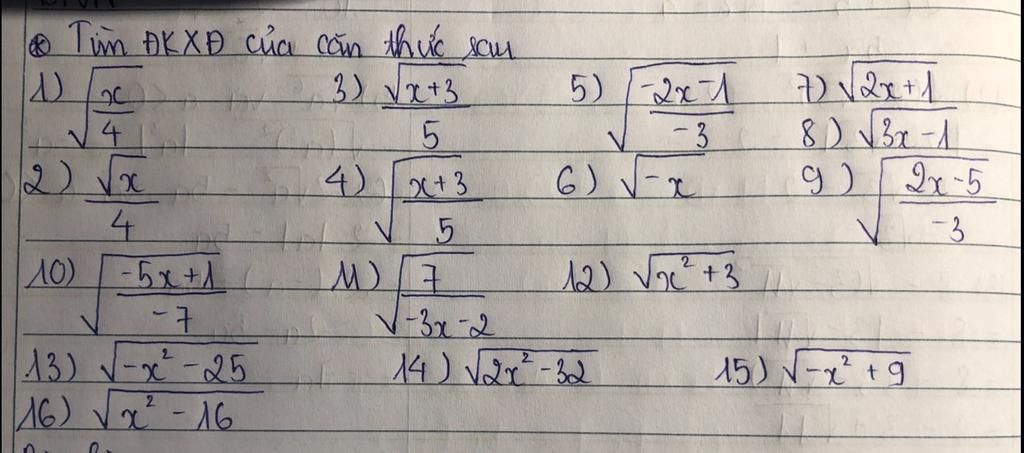 ⊛ Tìm ĐKXĐ của căn thức sau
1) √(x/4) 3) √(x+3)/5 5) √((-2x-1)/(-3)) 7) √(2x+1)
8) √(3x-1)
2) √x/4 4) √((x+3)/5) 6) √(-x) 9) √((2x-5)/(-3))
10) √((-5x+1)/(-7)) 11) √(7/(-3x-2)) 12) √(x²+3)
13) √(-x²-25) 14) √(2x²-32) 15) √(-x²+9)
16) √(x²-16)